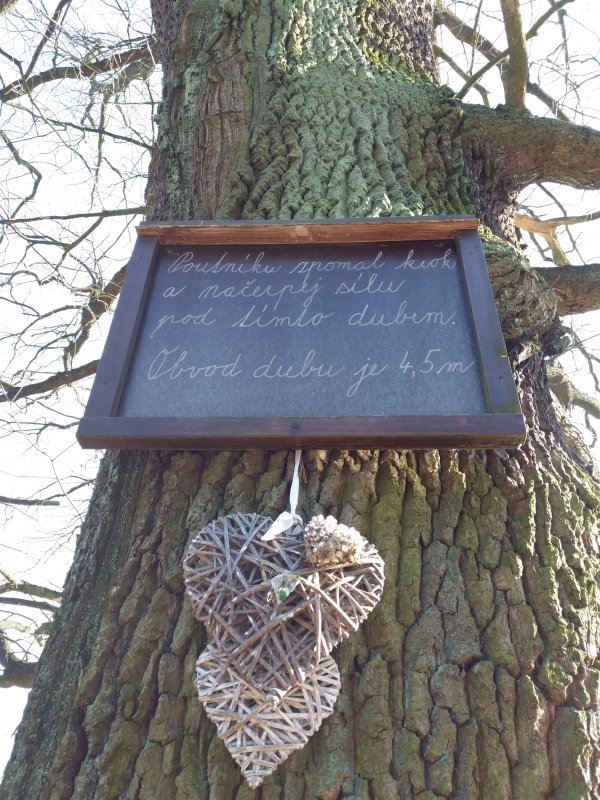 Poutníku zpomal krok
a načerpej sílu
pod tímto dubem.
Obvod dubu je 4,5m